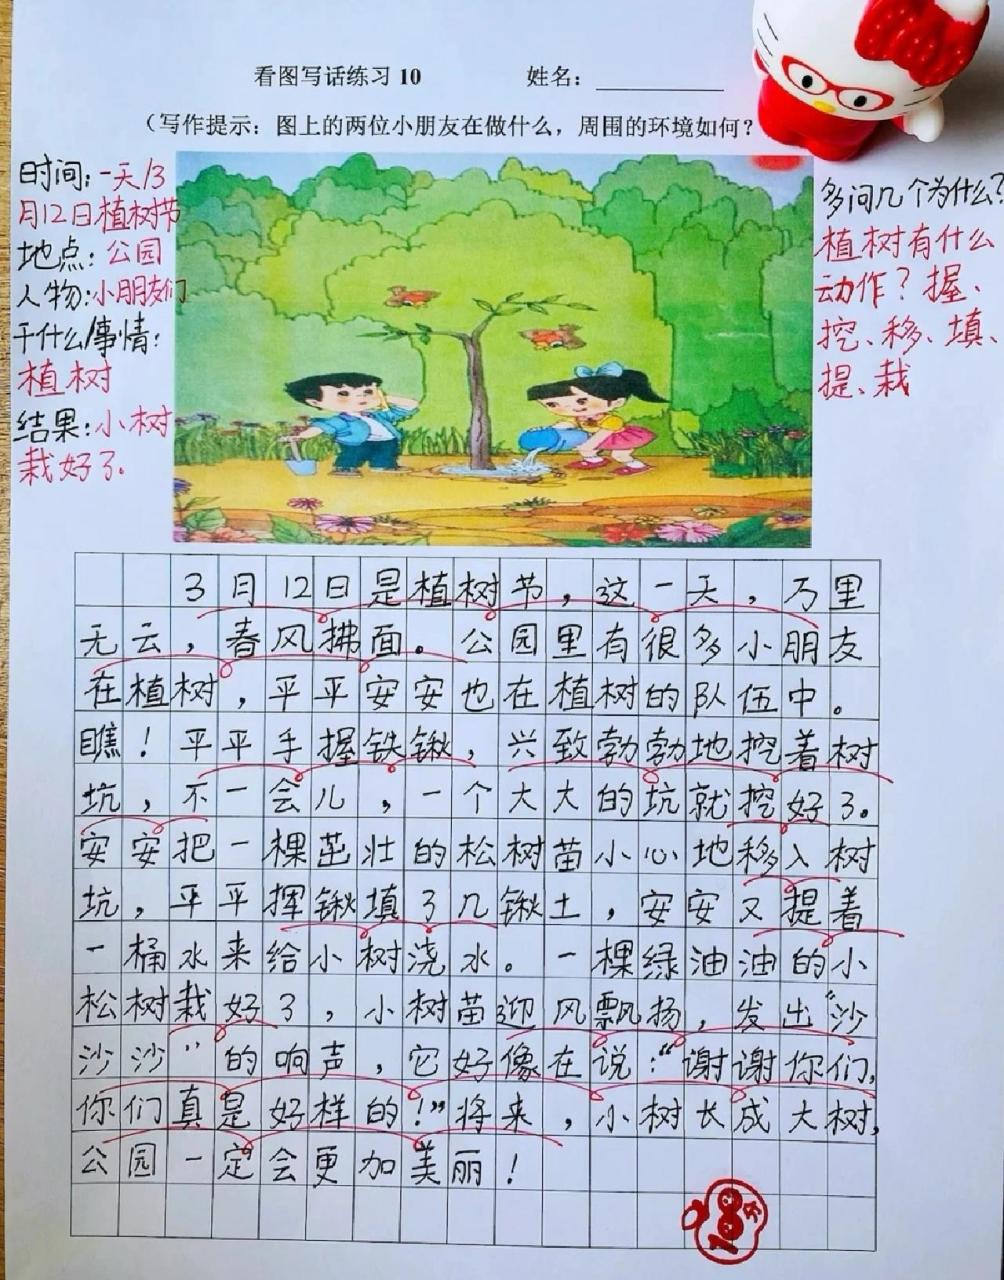 看图写话练习 10 姓名：
（写作提示：图上的两位小朋友在做什么，周围的环境如何？
时间：一天/3
月12日植树节
地点：公园
人物：小朋友们
干什么/事情：
植树
结果：小树
栽好了。
多问几个为什么？
植树有什么
动作？握、
挖、移、填、
提、栽
3月12日是植树节，这一天，万里
无云，春风拂面。公园里有很多小朋友
在植树，平平安安也在植树的队伍中。
瞧！平平手握铁锹，兴致勃勃地挖着树
坑，不一会儿，一个大大的坑就挖好了。
安安把一棵茁壮的松树苗小心地移入树
坑，平平挥锹填了几锹土，安安又提着
一桶水来给小树浇水。一棵绿油油的小
松树栽好了，小树苗迎风飘扬，发出“沙
沙沙”的响声，它好像在说：“谢谢你们，
你们真是好样的！”将来，小树长成大树，
公园一定会更加美丽！
100分